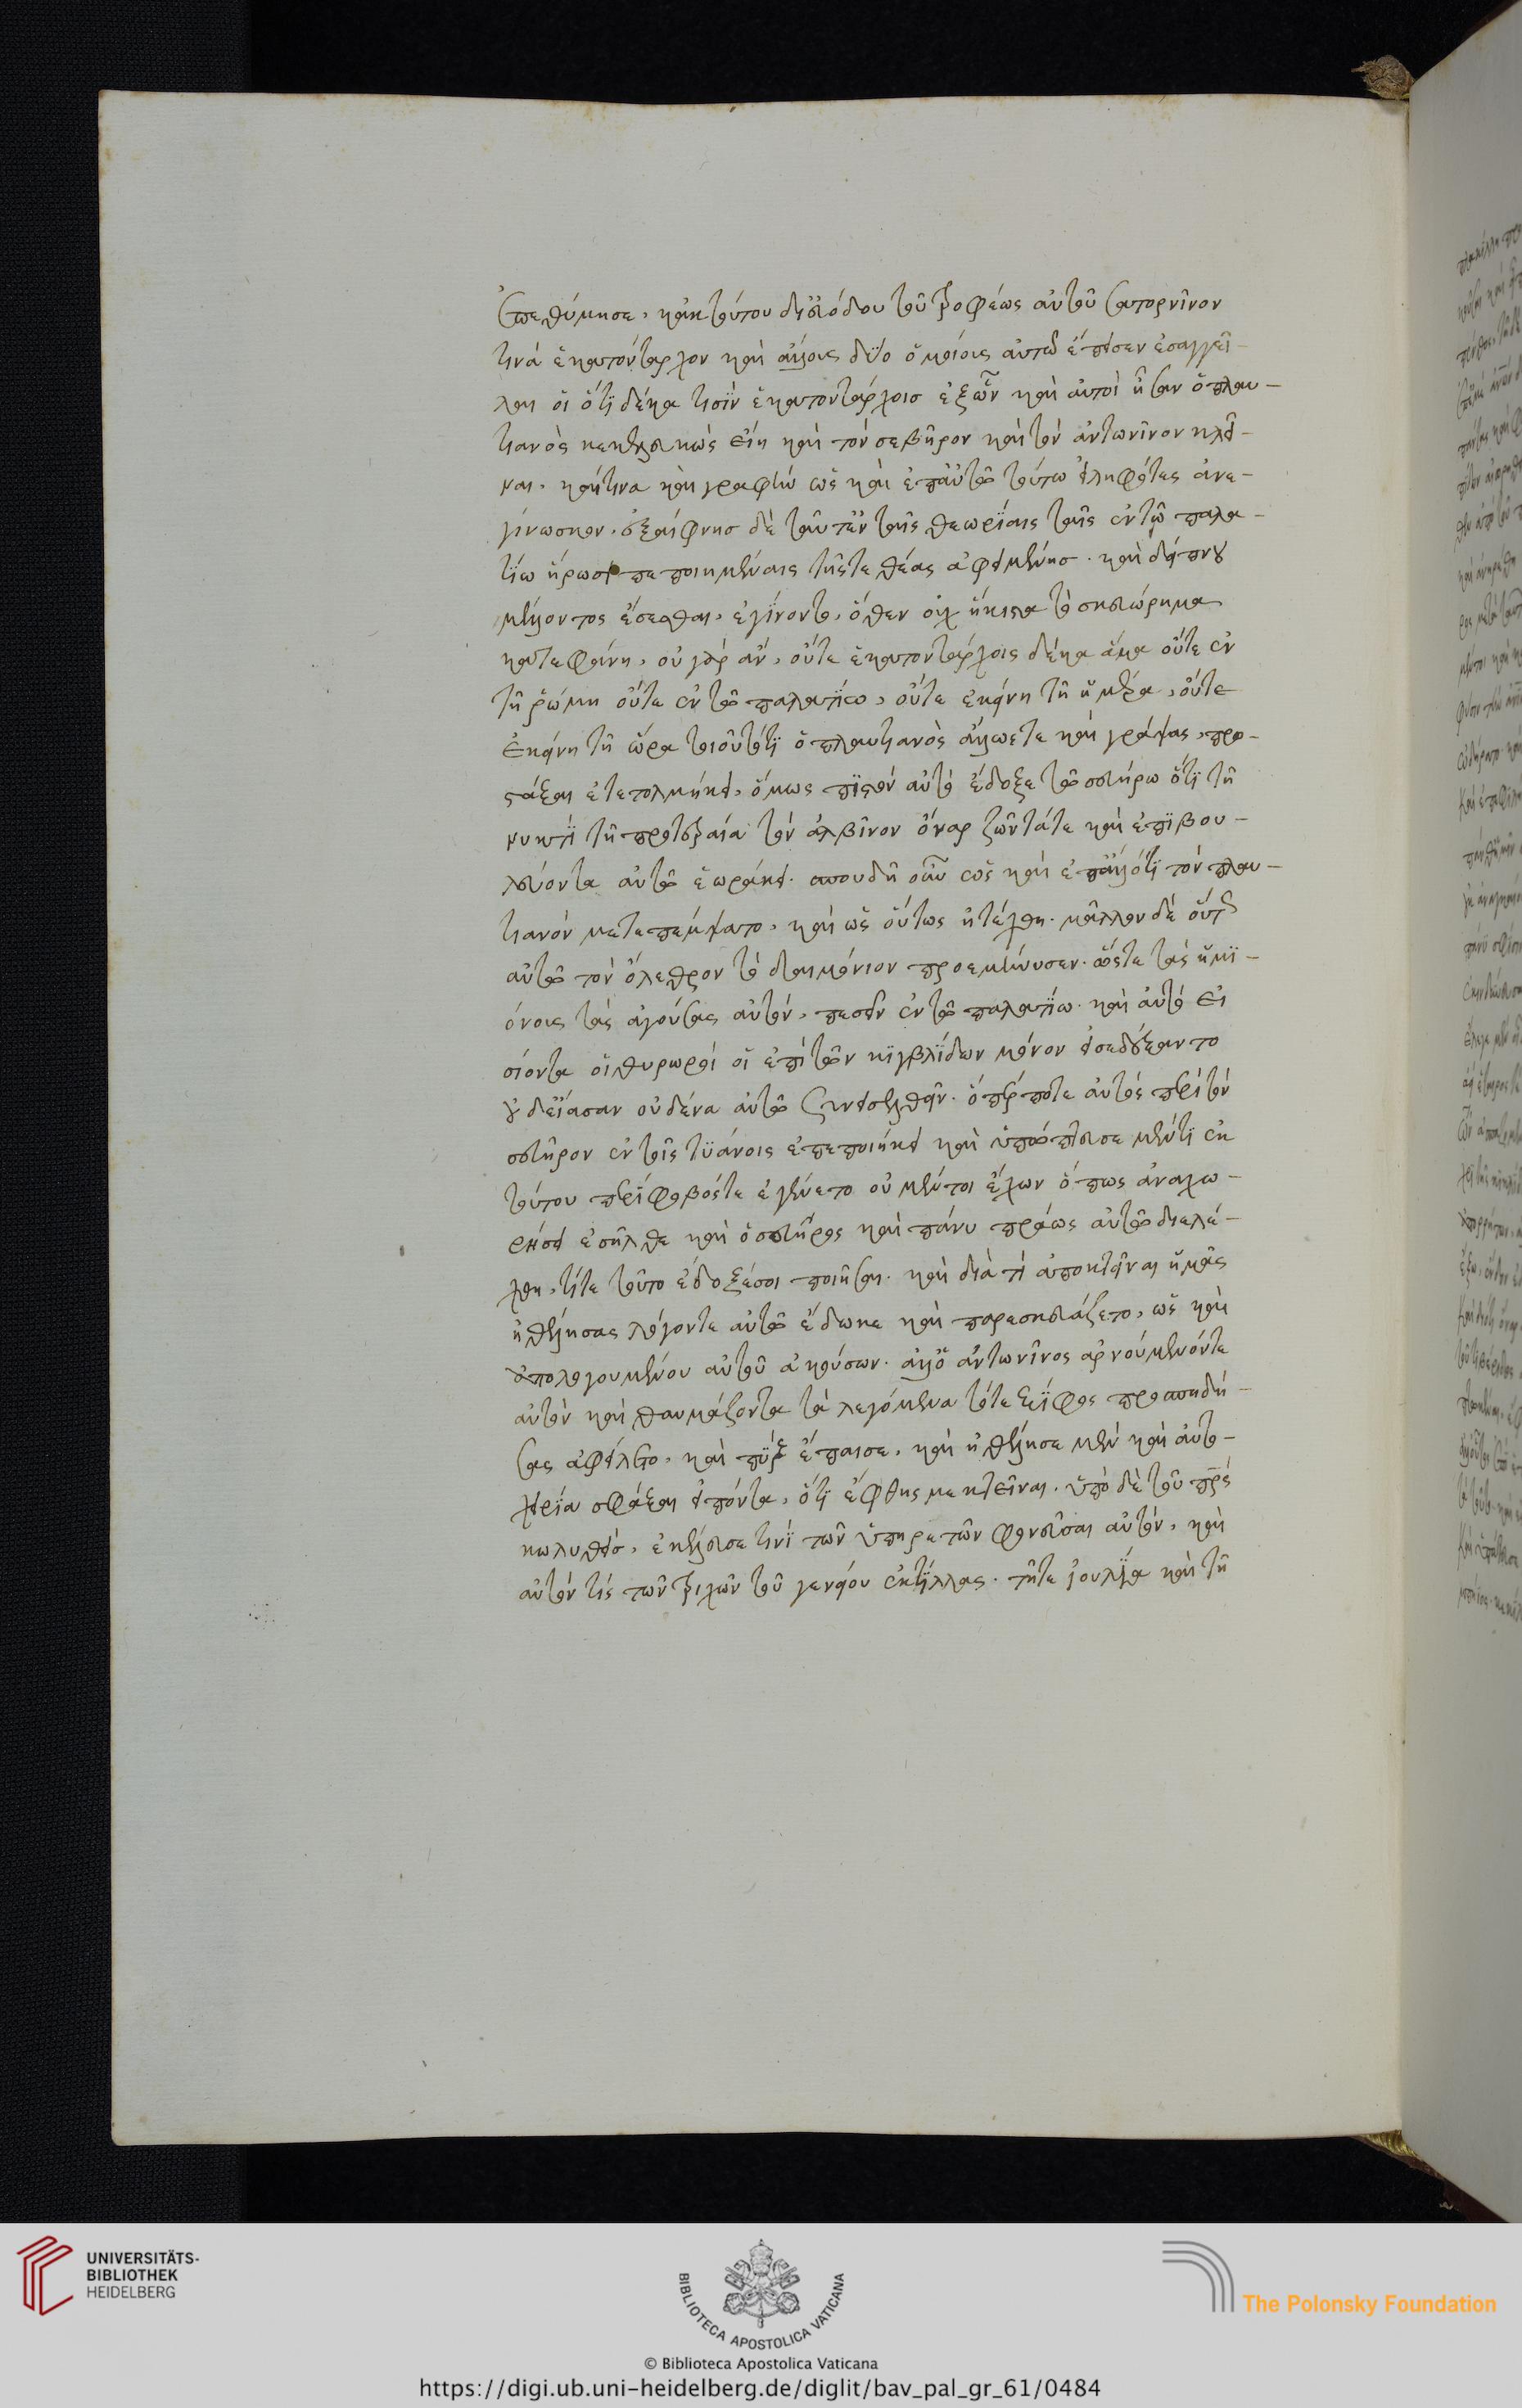 ἐπεθύμησε, κἀκ τούτου δι' εὐόδου τοῦ τροφέως αὐτοῦ σατορνῖνον
τινὰ ἑκατόνταρχον καὶ ἄλλοις δύο ὁμοίοις αὐτῶ ἔπεισεν ἐσαγγεῖ-
λαι οἱ ὅτι δέκα τισὶν ἑκατοντάρχοισ ἐξ ὧν καὶ αὐτοὶ ἦσαν ὁ πλαυ-
τιανὸς κεκελευκὼς εἴη καὶ τὸν σεβῆρον καὶ τὸν ἀντωνῖνον κτεῖ-
ναι. καί τινα καὶ γραφὴν ὡς καὶ ἐπ' αὐτῶ τούτω εἰληφότες ἀνε-
γίνωσκον. ἐξαίφνησ δὲ ταῦτ' ἐν ταῖς θεωρίαις ταῖς ἐν τῶ παλα-
τίω ἥρωσι πεποιημέναις τῆς τε θέας ἀφειμένησ. καὶ δείπνου
μέλλοντος ἔσεσθαι, ἐγίνοντο, ὅθεν οὐχ ἥκιστα τὸ σκευώρημα
κατεφάνη, οὐ γὰρ ἂν, οὔτε ἑκατοντάρχοις δέκα ἅμα οὔτε ἐν
τῆ ῥώμη οὔτε ἐν τῶ παλατίω, οὔτε ἐκείνη τῆ ἡμέρα, οὔτε
ἐκείνη τῆ ὥρα τοιοῦτό τι ὁ πλαυτιανὸς ἄλλως τε καὶ γράψας, προ-
στάξαι ἐτετολμήκει, ὅμως πιστὸν αὐτὸ ἔδοξε τῶ σευήρω ὅτι τῆ
νυκτὶ τῆ προτεραία τὸν ἀλβῖνον ὄναρ ζῶντά τε καὶ ἐπιβου-
λεύοντα αὐτῶ ἑωράκει. σπουδῆ οὖν ὡς καὶ ἐπ' ἄλλό τι τὸν πλαυ-
τιανὸν μετεπέμψατο, καὶ ὡς οὕτως ἠπείχθη. μᾶλλον δὲ οὕτως
αὐτῶ τὸν ὄλεθρον τὸ δαιμόνιον προεμήνυσεν. ὥστε τὰς ἡμι-
όνους τὰς ἀγούσας αὐτὸν, πεσεῖν ἐν τῶ παλατίω. καὶ αὐτὸ εἰ
σιόντα οἱ θυρωροὶ οἱ ἐπὶ τῶν κιγκλίδων μόνον εἰσεδέξαντο
οὐδ' εἴασαν οὐδένα αὐτῶ συνεισελθεῖν. ὅπερ ποτὲ αὐτὸς περὶ τὸν
σευῆρον ἐν τοῖς τυάνοις ἐπεποιήκει καὶ ὑπώπτευσε μέν τι ἐκ
τούτου περίφοβός τε ἐγένετο οὐ μέντοι ἔχων ὅπως ἀναχω-
ρήσει ἐσῆλθε καὶ ὁ σευῆρος καὶ πάνυ πράως αὐτῶ διελέ-
χθη, τί τε τοῦτο ἔδοξέ σοι ποιῆσαι. καὶ διὰ τί ἀποκτεῖναι ἡμᾶς
ἠθέλησας λόγον τε αὐτῶ ἔδωκε καὶ παρεσκευάζετο, ὡς καὶ
ἀπολογουμένου αὐτοῦ ἀκούσων. ἀλλ' ὁ ἀντωνῖνος ἀρνούμενόν τε
αὐτὸν καὶ θαυμάζοντα τὰ λεγόμενα τό τε ξίφος προσπηδή-
σας ἀφείλετο, καὶ πὺξ ἔπαισε, καὶ ἠθέλησε μὲν καὶ αὐτο-
χειρία σφάξαι εἰπόντα, ὅτι ἔφθης με κτεῖναι. ὑπὸ δὲ τοῦ πρς
κωλυθεὶσ, ἐκέλευσέ τινι τῶν ὑπηρετῶν φονεῦσαι αὐτὸν, καὶ
αὐτὸν τις τῶν τριχῶν τοῦ γενείου ἐκτίλλας. τῆ τε ἰουλία καὶ τῆ
UNIVERSITÄTS-
BIBLIOTHEK
HEIDELBERG
BIBLIOTECA APOSTOLICA VATICANA
The Polonsky Foundation
© Biblioteca Apostolica Vaticana
https://digi.ub.uni-heidelberg.de/diglit/bav_pal_gr_61/0484